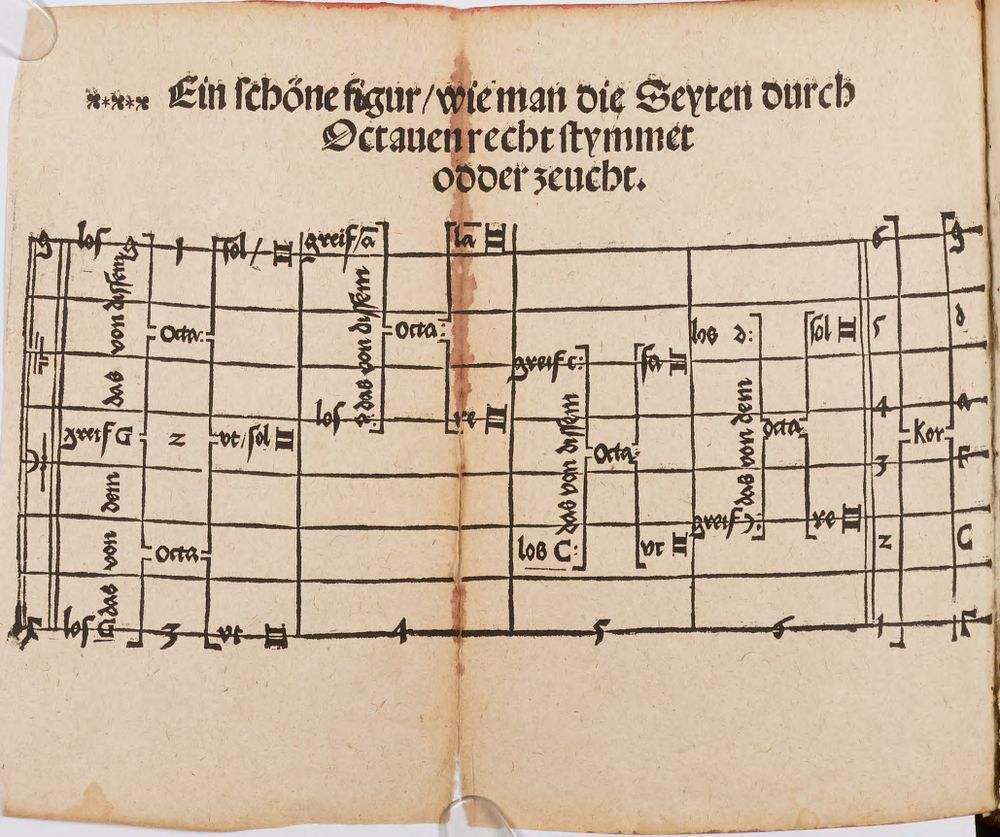 Ein schöne figur/wie man die Seyten durch
Octauen recht stymmet
odder zeucht.
g los g 1 sol/ II greif/a la III 6 g
das von dissem
das von dissem
Octa: Octa: los d: sol II 5 d
greif c: fa II
los re II 4 a
das von dissem
das von dem
greif G 2 vt/sol II octa Kor
Octa 3
das von dem
greif re II
Octa los C: vt II 2 C
los 3 vt II 4 5 6 1